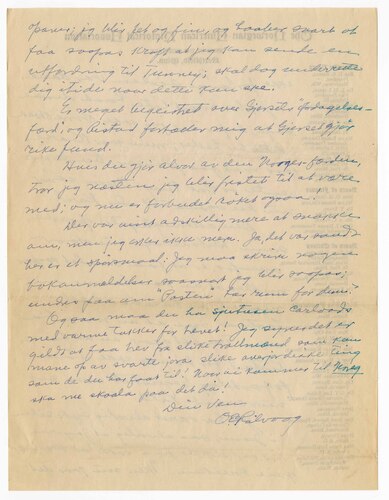 jeg blir fet og fin, og haaber snart at
faa saapas kraft at jeg kan sende en
utfordring til Tunney; skal dog underrette
dig itide naar dette kan ske.
Er meget begeistret over Gjersets
færd; og Ristad fortæller mig at Gjerset gjør
rike fund.
Hvis du gjør alvor av den Norges-færden,
tror jeg næsten jeg blir fristet til at være
med; og nu er forbudet røket ogsaa.
Der var visst adskillig mere at snakke
om, men jeg orker ikke mere. Ja, det var sandt
her er et spørsmaal: Jeg maa skrive nogen
bokanmeldelser saasnart jeg blir saapas;
mon "Posten" har rum for dem?
Ogsaa maa du ha
med varme takker for brevet! Jeg synes det er
gildt at faa brev fra slike trollmænd som kan
mane op av svarte jora slike overjordiske ting
som de du har faat til! Naar vi kommer til Norge
ska me skaala paa det då!
Din Ven,
OERølvaag